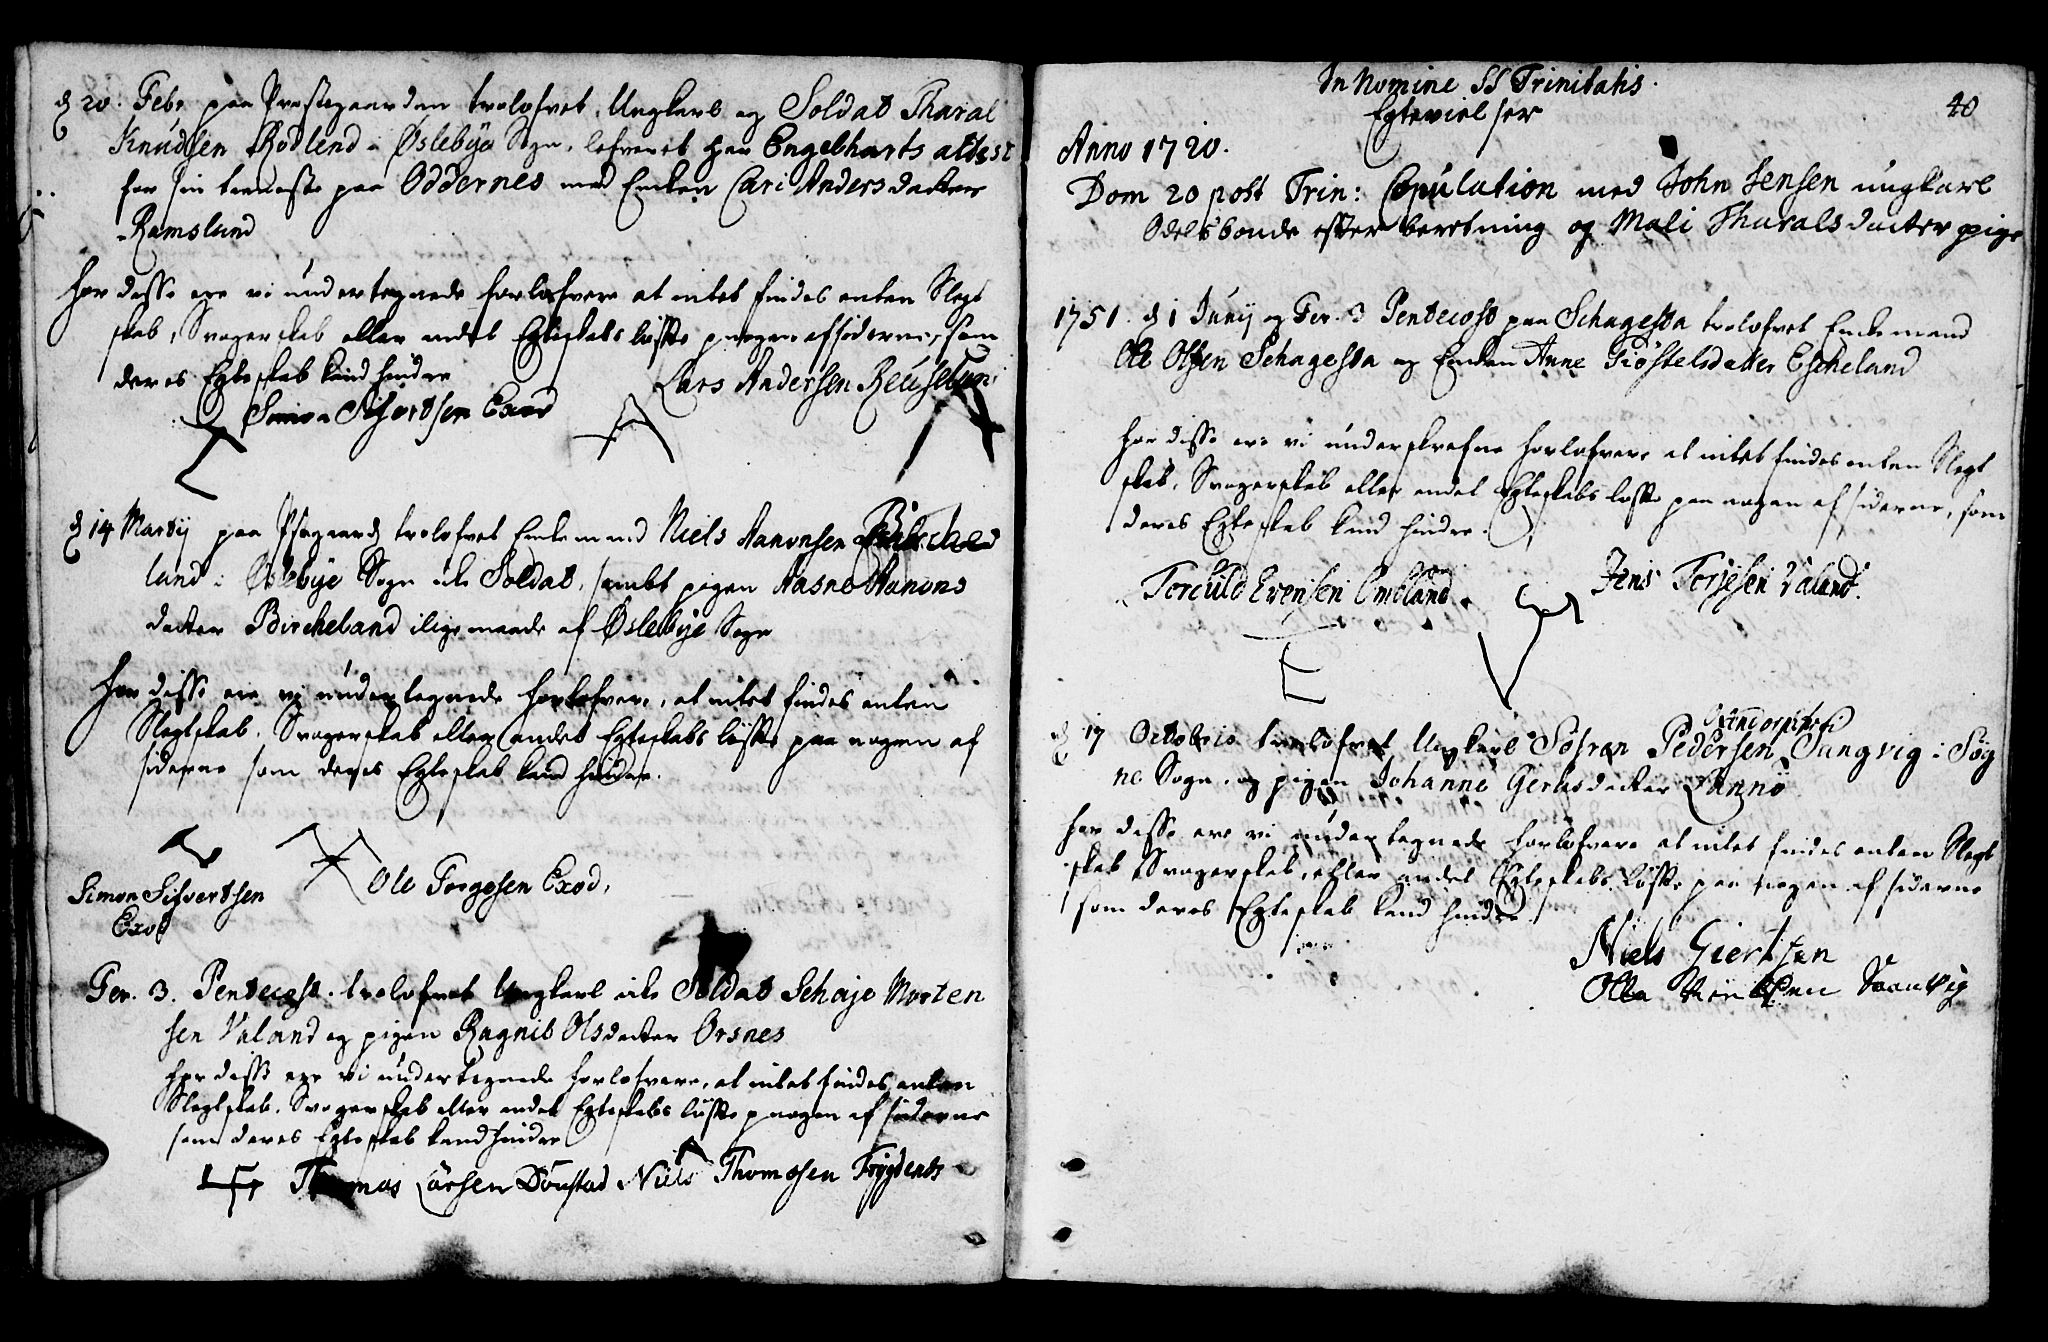 d 20. Febr paa Præstegaarden trolofvet Ungkarl og Soldat Tharal
Knudsen Rödlend i Øslebye Sogn, lefveret her Engebharts attest
for sin tieneste paa Oddernes med Enken Cari Andersdatter
Ramsland
For disse ere vi undertegnede forlofvere at intet findes enten Slegt
skab, Svogerskab eller andet Egteskabs löfte p nogen af siderne, som
deres Egteskab kand hindre
Lars Andersen
Simon Sifvertsen Exod
d 14 Martij paa trolofvet Enkemand Niels Aanonsen Birche
land i Øslebye Sogn Soldat, sambt pigen Aasne Aanons
datter Bircheland iligemaade af Øslebye Sogn
For disse ere vi undertegnede forlofvere, at intet findes enten
Slegtskab, Svogerskab eller andet Egteskabs löfte paa nogen af
siderne som deres Egteskab kand hindre.
Simon Sifvertsen
Exod
Ole Torgesen Exod,
Fer. 3. Pentecost. trolofvet Ungkarl Soldat Schaje Morten
sen Valand og pigen Ragnil Olsdatter Orsnes
For disse ere vi undertegnede forlofvere, at intet findes enten
Slegtskab, Svogerskab eller andet Egteskabs löfte p nogen af siderne
som deres Egteskab kand hindre
Thomas Larsen Dönstad Niels Thomesen
In Nomine SS Trinitatis.
Egtevielser
40
Anno 1720.
Dom 20 post Trin: Copulation med John Jensen ungkarl
Odelsbonde efter beretning og Mali Tharalsdatter pige
1751. d 1 Junij og Fer. 3 Pentecost paa Schagestа trolofvet Enkemand
Ole Olsen Schagesta og Enken Anne Tiöstelsdatter Escheland
For disse ere vi underskrefne forlofvere at intet findes enten Slegt
skab, Svogerskab eller andet Egteskabs löfte paa nogen af siderne, som
deres Egteskab kand hindre.
Torculd Evensen Omdland. Jens Torjesen Valand.
d 17 Octobris trolofvet Ungkarl Söfren Pedersen Sangvig i Søg
ne Sogn, og pigen Johanne Gertsdatter
For disse ere vi undertegnede forlofvere at intet findes enten Slegt
skab Svogerskab, eller andet Egteskabs löfte paa nogen af siderne
som deres Egteskab kand hindre
Niels Giertsen